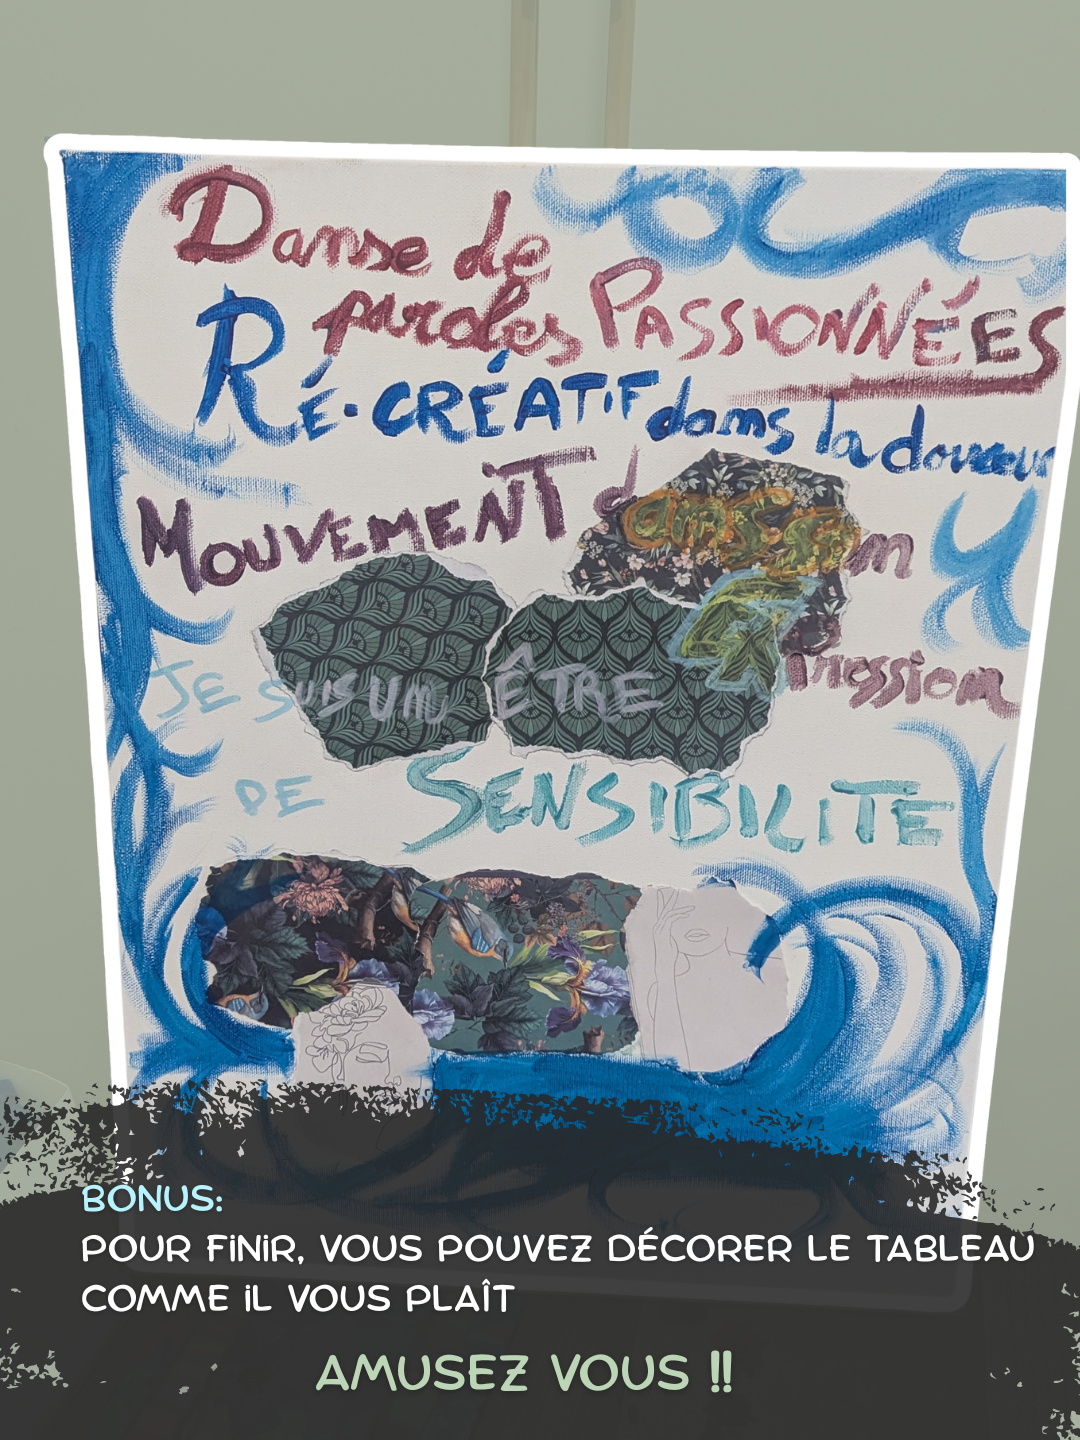 Danse de
paroles PASSIONNÉES
RÉ-CRÉATIF dans la douceur
MOUVEMENT
JE SUIS UM ÊTRE
pression
DE SENSIBILITE
BONUS:
POUR FINIR, VOUS POUVEZ DÉCORER LE TABLEAU
COMME IL VOUS PLAÎT
AMUSEZ VOUS !!